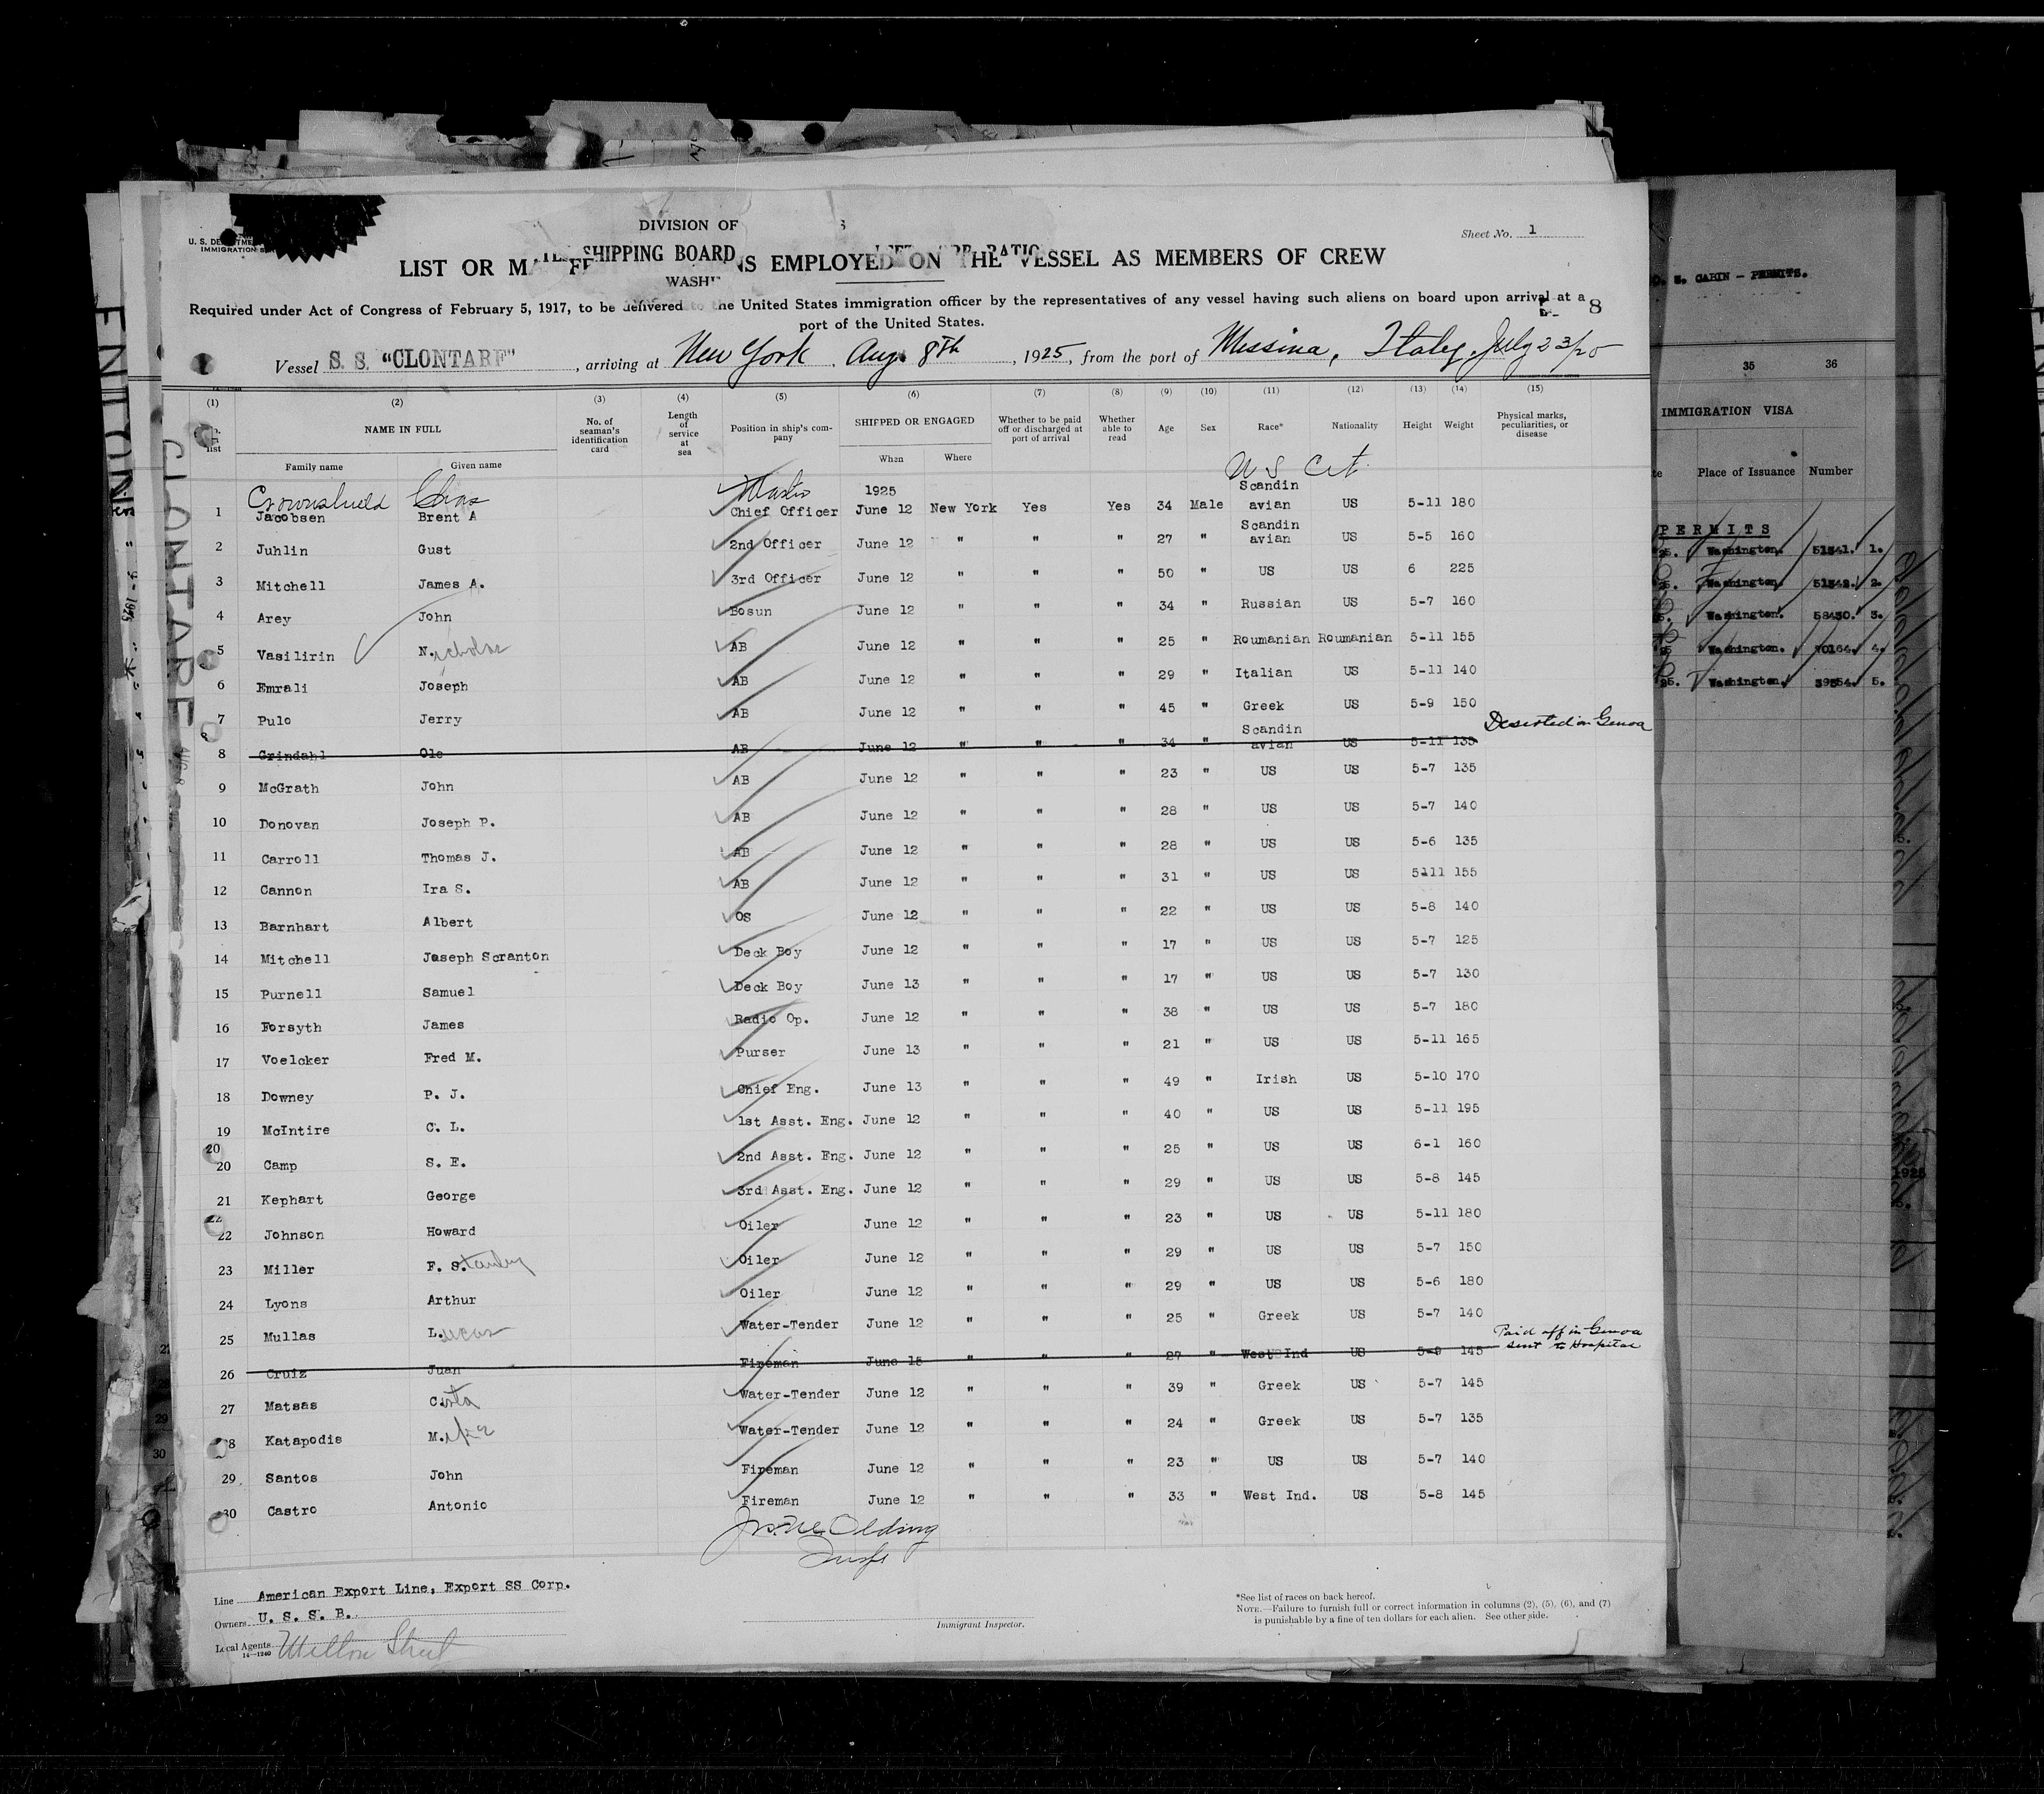 DIVISION OF
SHIPPING BOARD
WASH
U. S. DE
IMMIGRATION S
Sheet No. 1
LIST OR MA EMPLOYED ON THE VESSEL AS MEMBERS OF CREW
Required under Act of Congress of February 5, 1917, to be delivered to the United States immigration officer by the representatives of any vessel having such aliens on board upon arrival at a
port of the United States.
8
Vessel S. S. "CLONTARF", arriving at New York. Aug. 8th, 1925, from the port of Messina, Italy. July 23/25
(1) (2) (3) (4) (5) (6) (7) (8) (9) (10) (11) (12) (13) (14) (15)
list NAME IN FULL No. of seaman's identification card Length of service at sea Position in ship's company SHIPPED OR ENGAGED Whether to be paid off or discharged at port of arrival Whether able to read Age Sex Race* Nationality Height Weight Physical marks, peculiarities, or disease
Family name Given name When Where
Crowninshield Chas Master U S Cit.
1925
1 Jacobsen Brent A Chief Officer June 12 New York Yes Yes 34 Male Scandin avian US 5-11 180
2 Juhlin Gust 2nd Officer June 12 " " " 27 " Scandin avian US 5-5 160
3 Mitchell James A. 3rd Officer June 12 " " " 50 " US US 6 225
4 Arey John Bosun June 12 " " " 34 " Russian US 5-7 160
5 Vasilirin N.icholas AB June 12 " " " 25 " Roumanian Roumanian 5-11 155
6 Emrali Joseph AB June 12 " " " 29 " Italian US 5-11 140
7 Pulo Jerry AB June 12 " " " 45 " Greek US 5-9 150
8 Grindahl Ole AB June 12 " " " 34 " Scandin avian US 5-11 135 Deserted in Genoa
9 McGrath John AB June 12 " " " 23 " US US 5-7 135
10 Donovan Joseph P. AB June 12 " " " 28 " US US 5-7 140
11 Carroll Thomas J. AB June 12 " " " 28 " US US 5-6 135
12 Cannon Ira S. AB June 12 " " " 31 " US US 5-11 155
13 Barnhart Albert OS June 12 " " " 22 " US US 5-8 140
14 Mitchell Joseph Scranton Deck Boy June 12 " " " 17 " US US 5-7 125
15 Purnell Samuel Deck Boy June 13 " " " 17 " US US 5-7 130
16 Forsyth James Radio Op. June 12 " " " 38 " US US 5-7 180
17 Voelcker Fred M. Purser June 13 " " " 21 " US US 5-11 165
18 Downey P. J. Chief Eng. June 13 " " " 49 " Irish US 5-10 170
19 McIntire C. L. 1st Asst. Eng. June 12 " " " 40 " US US 5-11 195
20
20 Camp S. E. 2nd Asst. Eng. June 12 " " " 25 " US US 6-1 160
21 Kephart George 3rd Asst. Eng. June 12 " " " 29 " US US 5-8 145
22 Johnson Howard Oiler June 12 " " " 23 " US US 5-11 180
23 Miller F. S.tanley Oiler June 12 " " " 29 " US US 5-7 150
24 Lyons Arthur Oiler June 12 " " " 29 " US US 5-6 180
25 Mullas L.ucas Water-Tender June 12 " " " 25 " Greek US 5-7 140
26 Cruiz Juan Fireman June 15 " " " 27 " West Ind US 5-9 145 Paid off in Genoa sent to Hospital
27 Matsas Water-Tender June 12 " " " 39 " Greek US 5-7 145
28 Katapodis M. Water-Tender June 12 " " " 24 " Greek US 5-7 135
29 Santos John Fireman June 12 " " " 23 " US US 5-7 140
30 Castro Antonio Fireman June 12 " " " 33 " West Ind. US 5-8 145
Line American Export Line, Export SS Corp.
Owners U. S. S. B.
Local Agents
14—1240
Immigrant Inspector.
*See list of races on back hereof.
NOTE.—Failure to furnish full or correct information in columns (2), (5), (6), and (7)
is punishable by a fine of ten dollars for each alien. See other side.
CABIN - PERMITS.
35 36
IMMIGRATION VISA
Place of Issuance Number
PERMITS
25. Washington. 51341. 1.
25. Washington. 51342. 2.
Washington. 58430. 3.
Washington. 70164. 4.
25. Washington. 39554. 5.
1925
CLONTARF